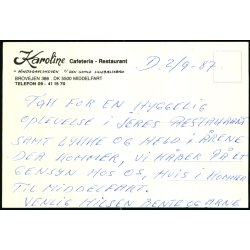 Karoline Cafeteria - Restaurant
BROVEJEN 366 . DK 5500 MIDDELFART
TELEFON 09 - 41 15 70
D. 2/9-87.
TAK FOR EN HYGGELIG
OPLEVELSE I JERES RESTAURANT
SAMT LYKKE OG HELD I ÅRENE
DER KOMMER, VI HÅBER PÅ ET
GENSYN HOS OS, HVIS I KOMMER
TIL MIDDELFART.
VENLIG HILSEN BENTE OG ARNE